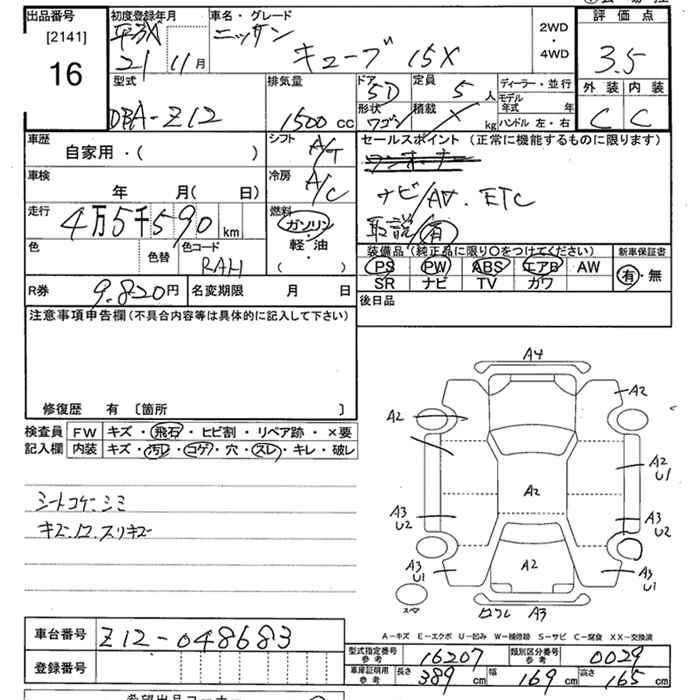 出品番号
[2141]
16
初度登録年月
平成
21 11月
車名・グレード
ニッサン
キューブ 15X
2WD
・
4WD
評価点
3.5
外装 内装
C C
型式
DBA-Z12
排気量
1500 cc
ドア
5D
形状
ワゴン
定員
5人
積載
kg
ディーラー・並行
モデル年式 年
ハンドル 左・右
車歴
自家用・( )
シフト
A/T
セールスポイント (正常に機能するものに限ります)
ナビ/AV. ETC
取説/有
車検
年 月( 日)
冷房
A/C
走行
4万5千590km
燃料
ガソリン
・
軽・油
( )
色
色替
色コード
RAH
装備品(純正品に限り○をつけてください)
PS PW ABS エアB AW
SR ナビ TV カワ
新車保証書
有・無
R券
9.820円
名変期限 月 日
後日品
注意事項申告欄(不具合内容等は具体的に記入して下さい)
修復歴 有 〔箇所 〕
検査員
記入欄
FW キズ・飛石・ヒビ割・リペア跡・×要
内装 キズ・汚レ・コゲ・穴・スレ・キレ・破レ
シートコゲ.シミ
A4
A2
A2
A2
U1
A2
A3
U2
A3
U2
A2
A3
U1
A3
U1
A3
A-キズ E-エクボ U-凹み W-補修跡 S-サビ C-腐食 XX-交換済
車台番号
Z12-048683
登録番号
型式指定番号
参考
16207
類別区分番号
参考
0029
車庫証明用
参考
長さ 389cm 幅 169cm 高さ 165cm
希望出品コーナー